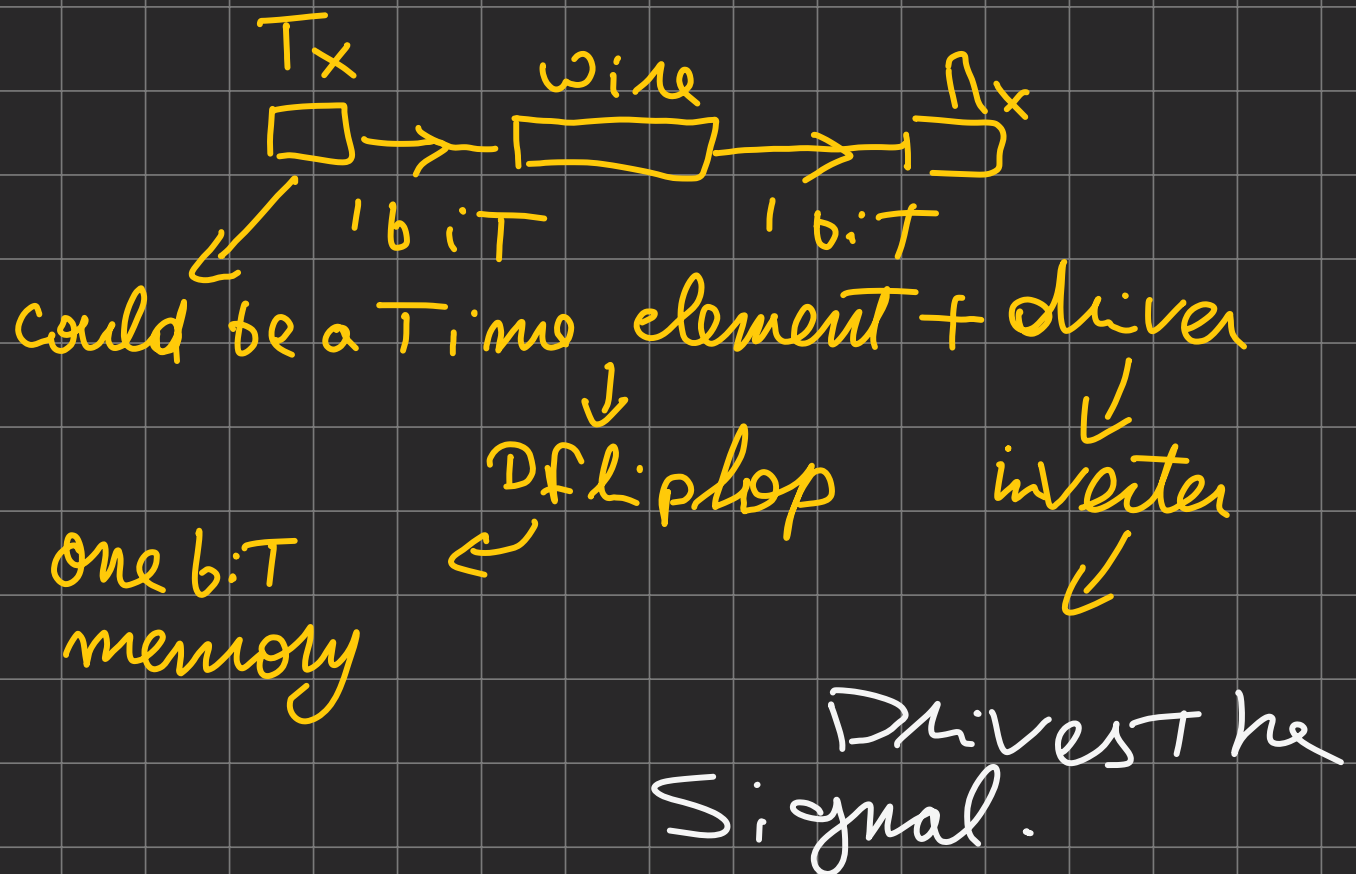 Tx wire Rx
1 biT 1 biT
could be a Time element + driver
Dflipflop inverter
one biT
memory
Drives The
Signal.